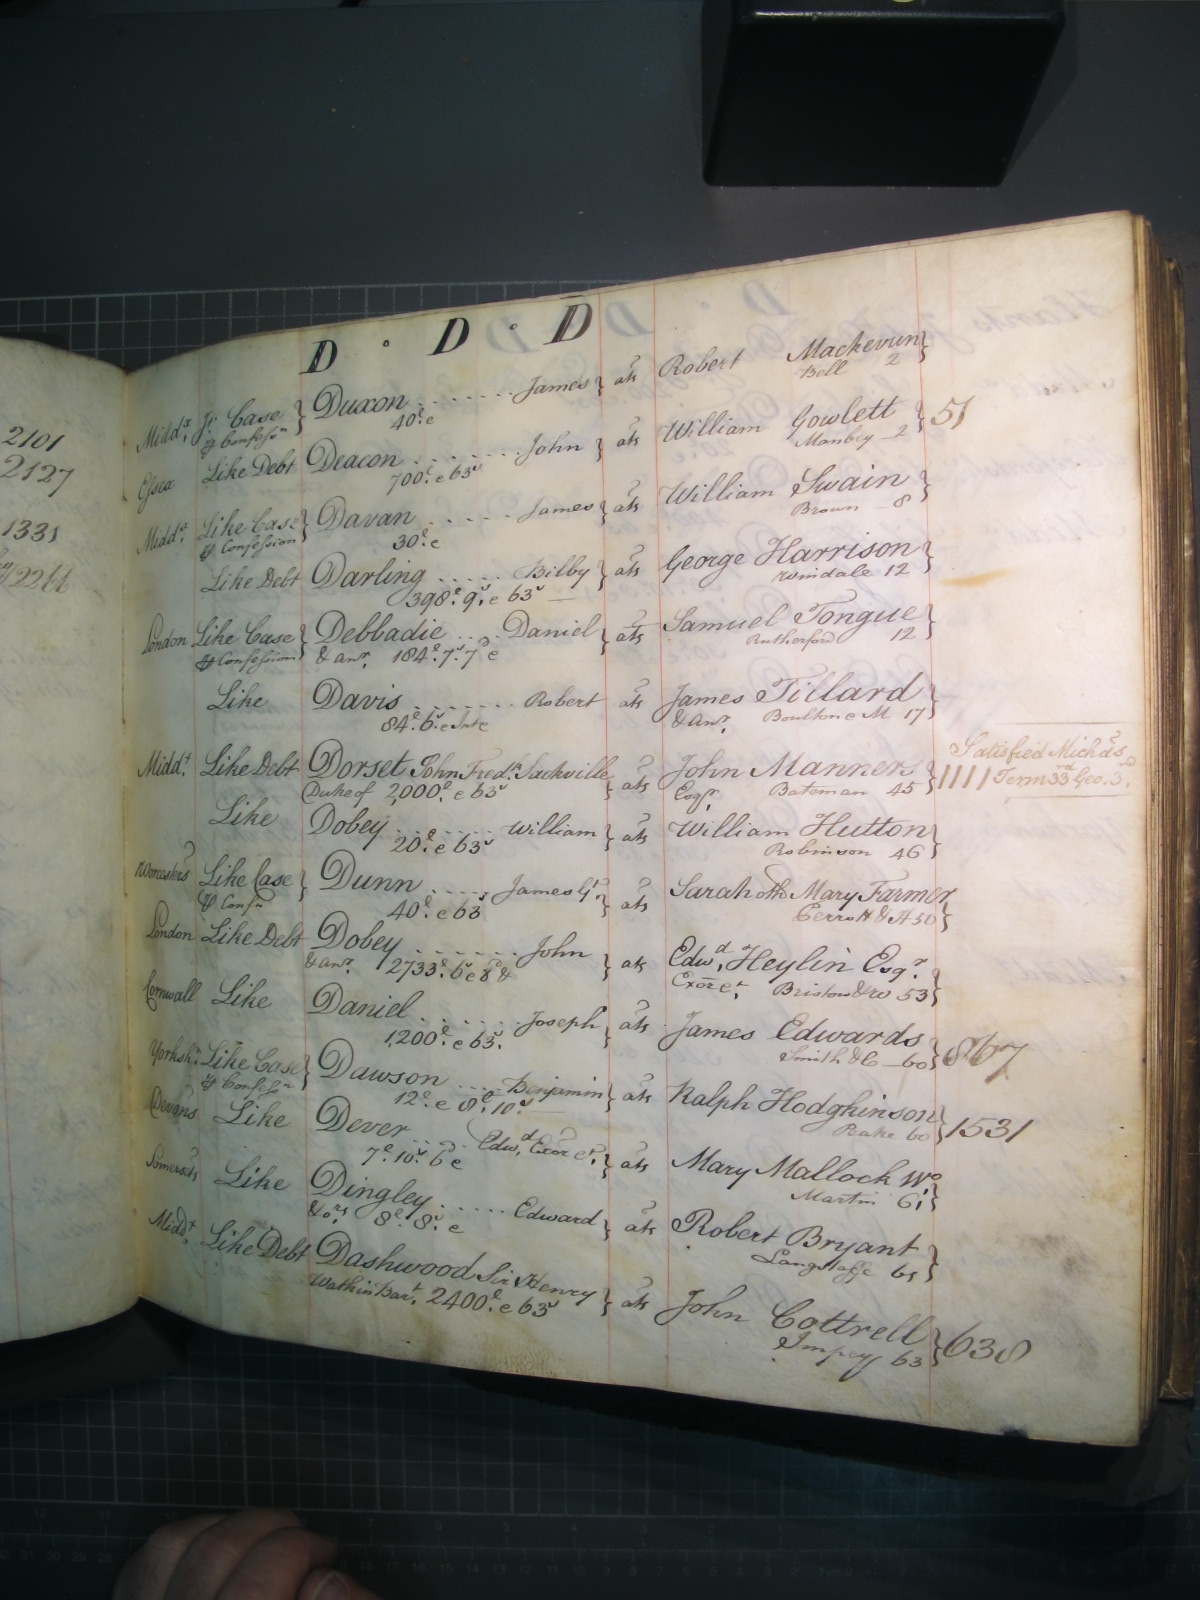 2101
2127
1331
D . D . D
Middx. Jt. Case } Duxon ........ James } ats Robert Mackevun }
& Confessn 40£. c Bell 2
Essex Like Debt Deacon ........ John } ats William Gowlett } 51
700£. c 63s Manbey 2
Middx. Like Case } Davan ..... James } ats William Swain }
& Confession 30£. c Brown 8
Like Debt Darling ..... Bilby } ats George Harrison }
398£. 9s. c 63s Windale 12
London Like Case } Debbadie .... Daniel } ats Samuel Tongue }
& Confession & anr. 184£. 7s. 7d c Rutherford 12
Like Davis ....... Robert ats James Tillard }
84£. 6s. c Inte & anr. Boulton e M 17
Middx. Like Debt Dorset John Fredk. Sackville } ats John Manners }
Duke of 2,000£. c 63s Esqr. Bateman 45
1111 Satisfied Michas
Term 33rd Geo. 3d.
Like Dobey ....... William } ats William Hutton }
20£. c 63s Robinson 46
Worcesters Like Case } Dunn ..... James Gt. } ats Sarah oth Mary Farmer }
& Confn 40£. c 63s Perrott & A 50
London Like Debt Dobey ....... John } ats Edwd. Heylin Esqr. }
& anr. 2733£. 6s c 8d & Exōr et. Bristow & Co 53
Cornwall Like Daniel ....... Joseph } ats James Edwards } 867
1,200£. c 63s. Smith & C 60
Yorkshr. Like Case } Dawson .... Benjamin } ats Ralph Hodgkinson } 1531
& Confessn 12£. c 8£. 10s. Peake 60
Devans Like Dever .... Edwd. Exōr et. } ats Mary Mallock Wo. }
7£. 10s. 6 c Martin 61
Somersets Like Dingley ..... Edward } ats Robert Bryant }
& ors. 8£. 8s. c Langstaffe 61
Middx. Like Debt Dashwood Sir Henry } ats John Cottrell } 638
Watkin Bart. 2400£. c 63s Impey 63